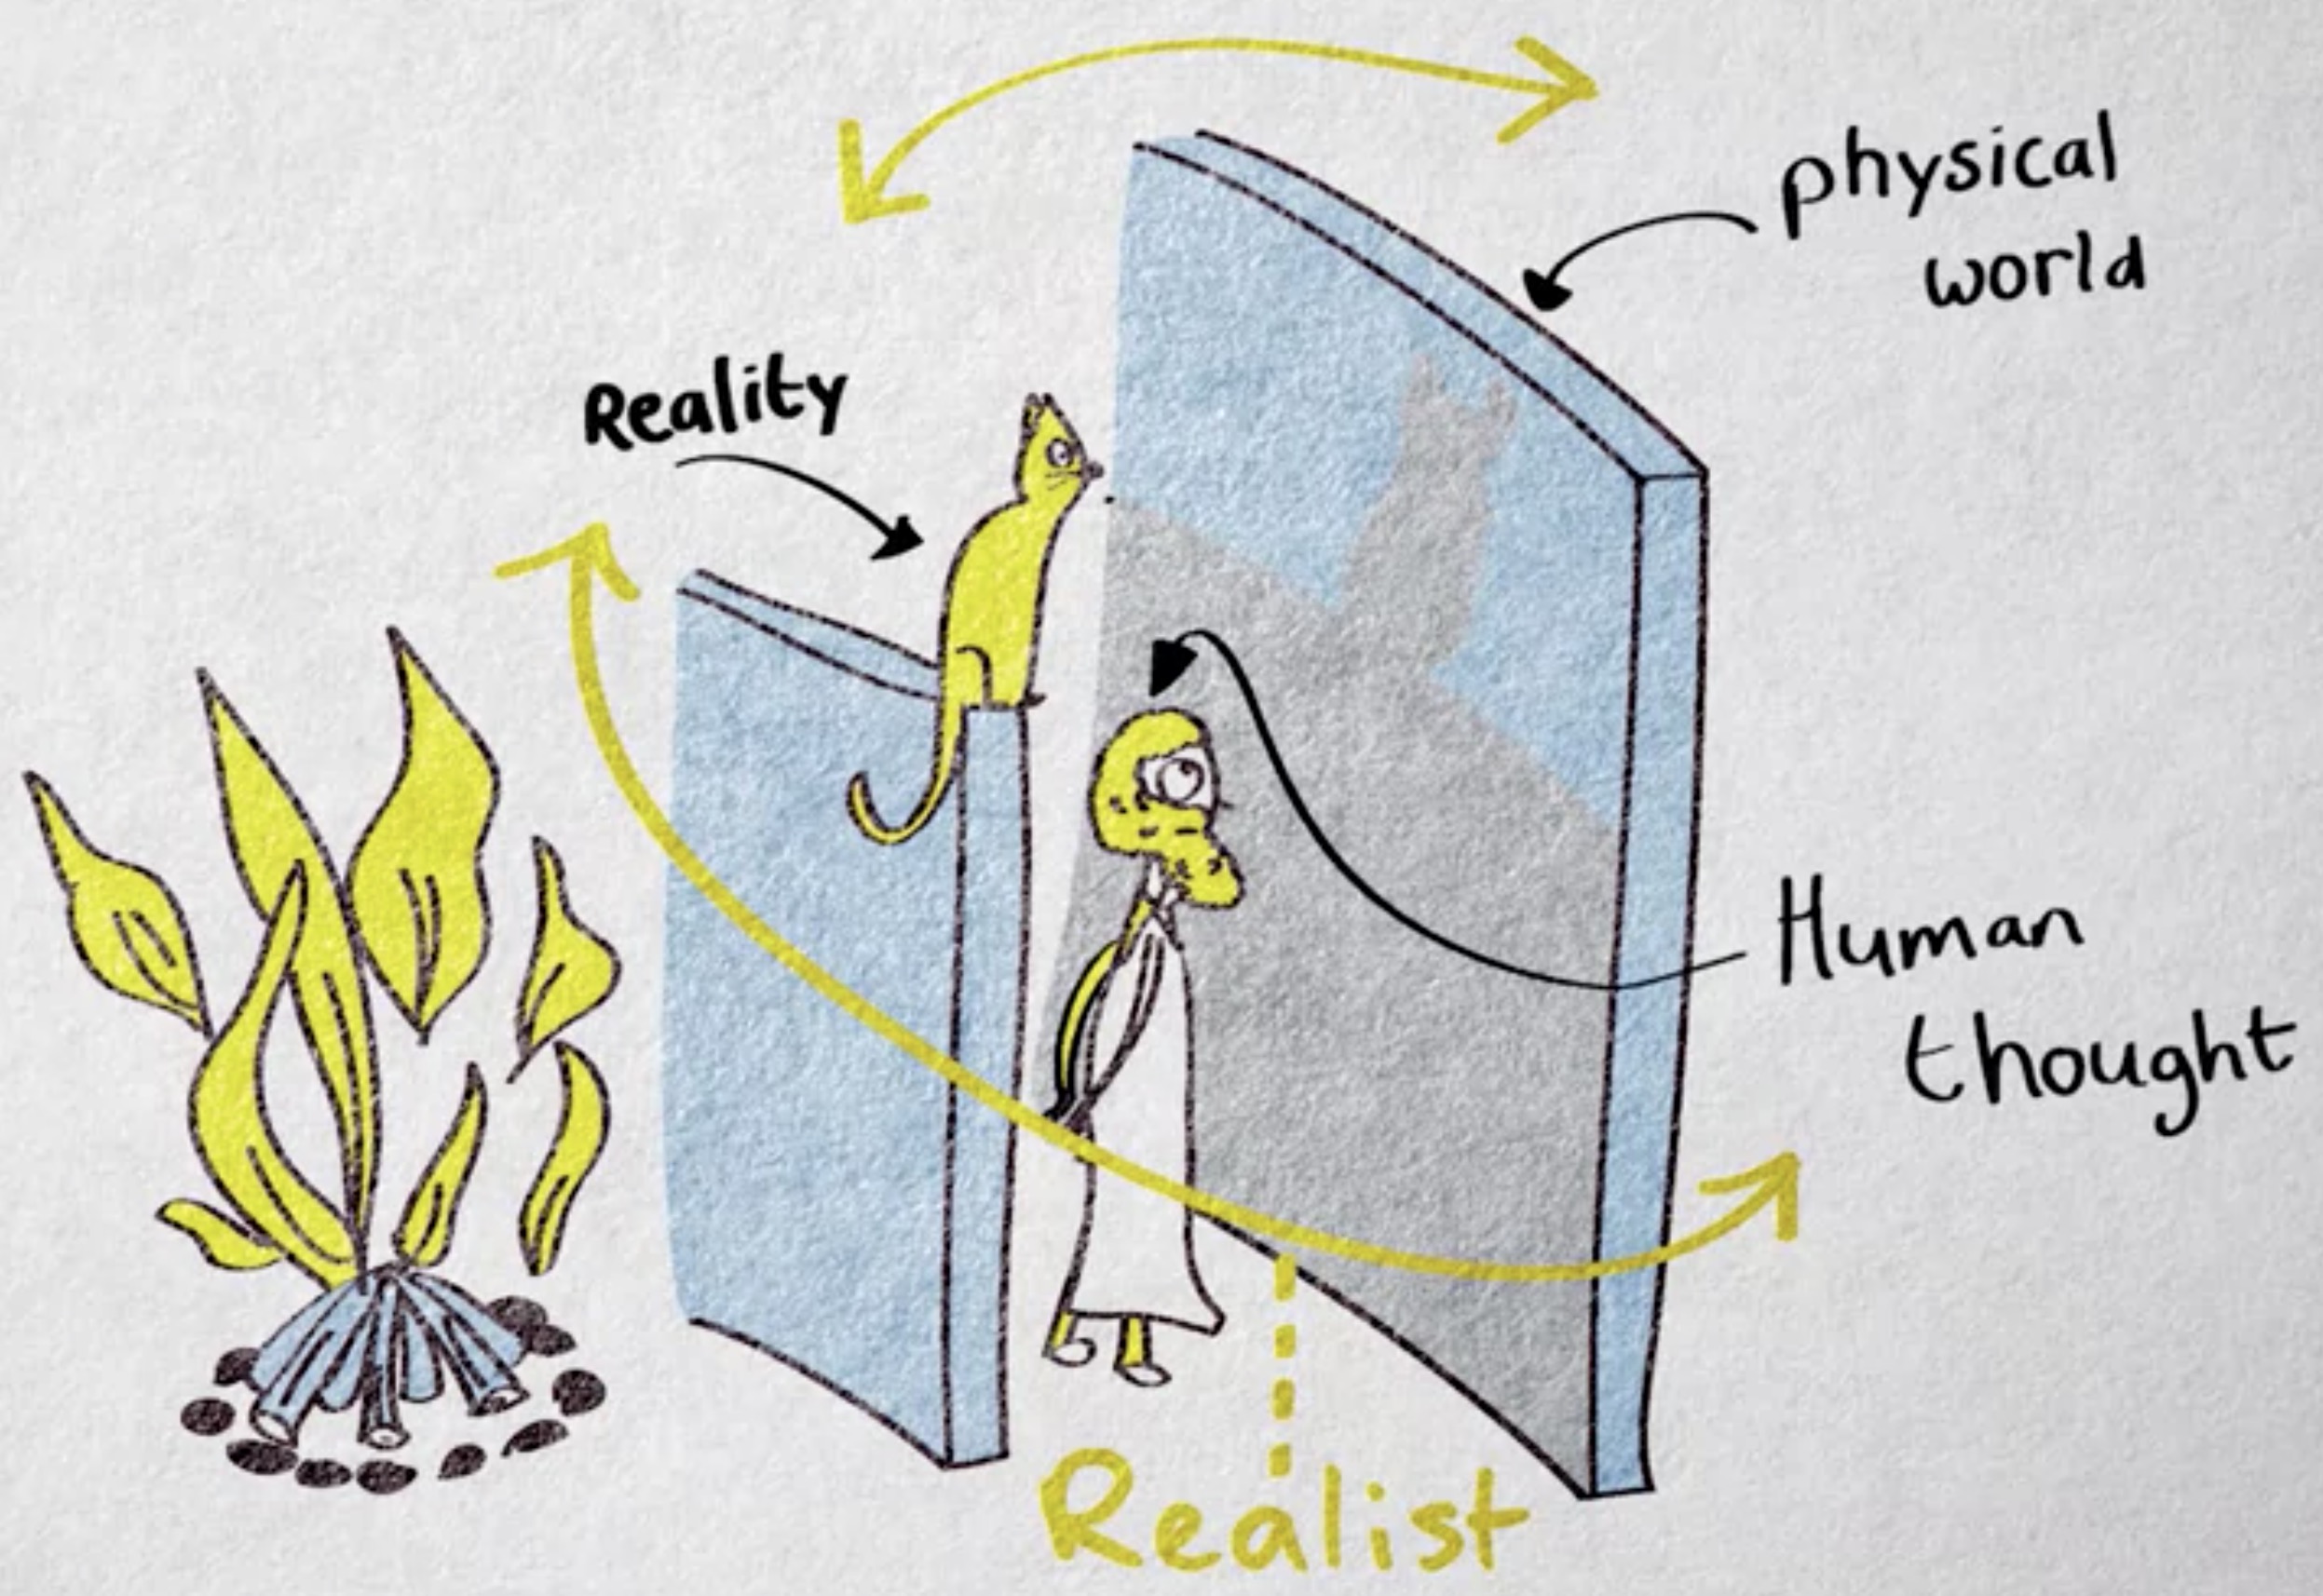 physical
world
Reality
Human
thought
Realist